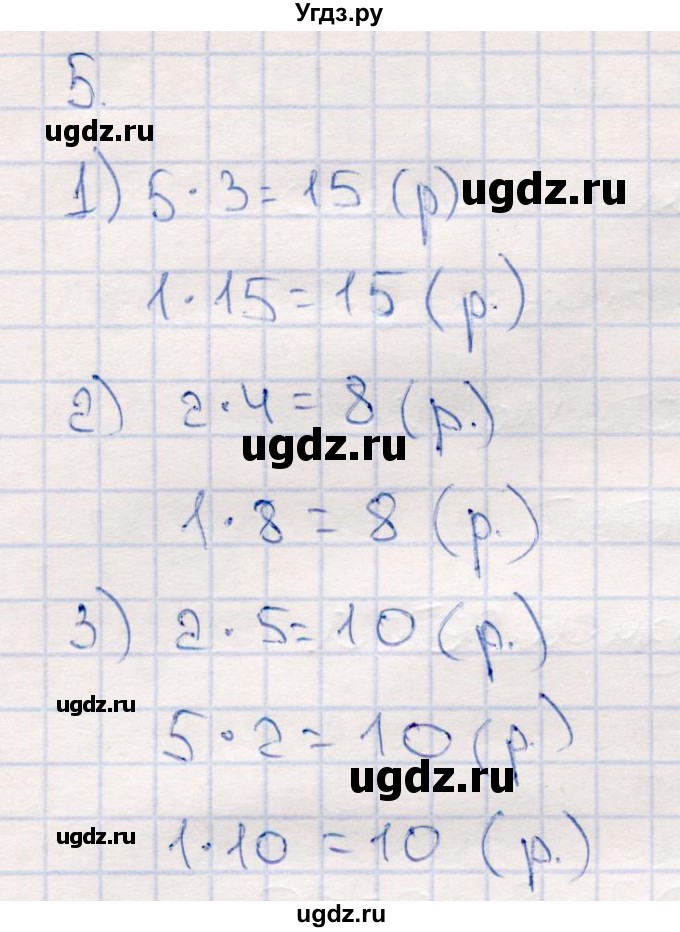 Угдз.ру
5.
ugdz.ru
1) 5·3=15 (р) ugdz.ru
1·15=15 (р.)
2) 2·4=8 (р.)
ugdz.ru
1·8=8 (р.)
3) 2·5=10 (р.)
ugdz.ru
5·2=10 (р.)
ugdz.ru
ugdz.ru 1·10=10 (р.)
ugdz.ru